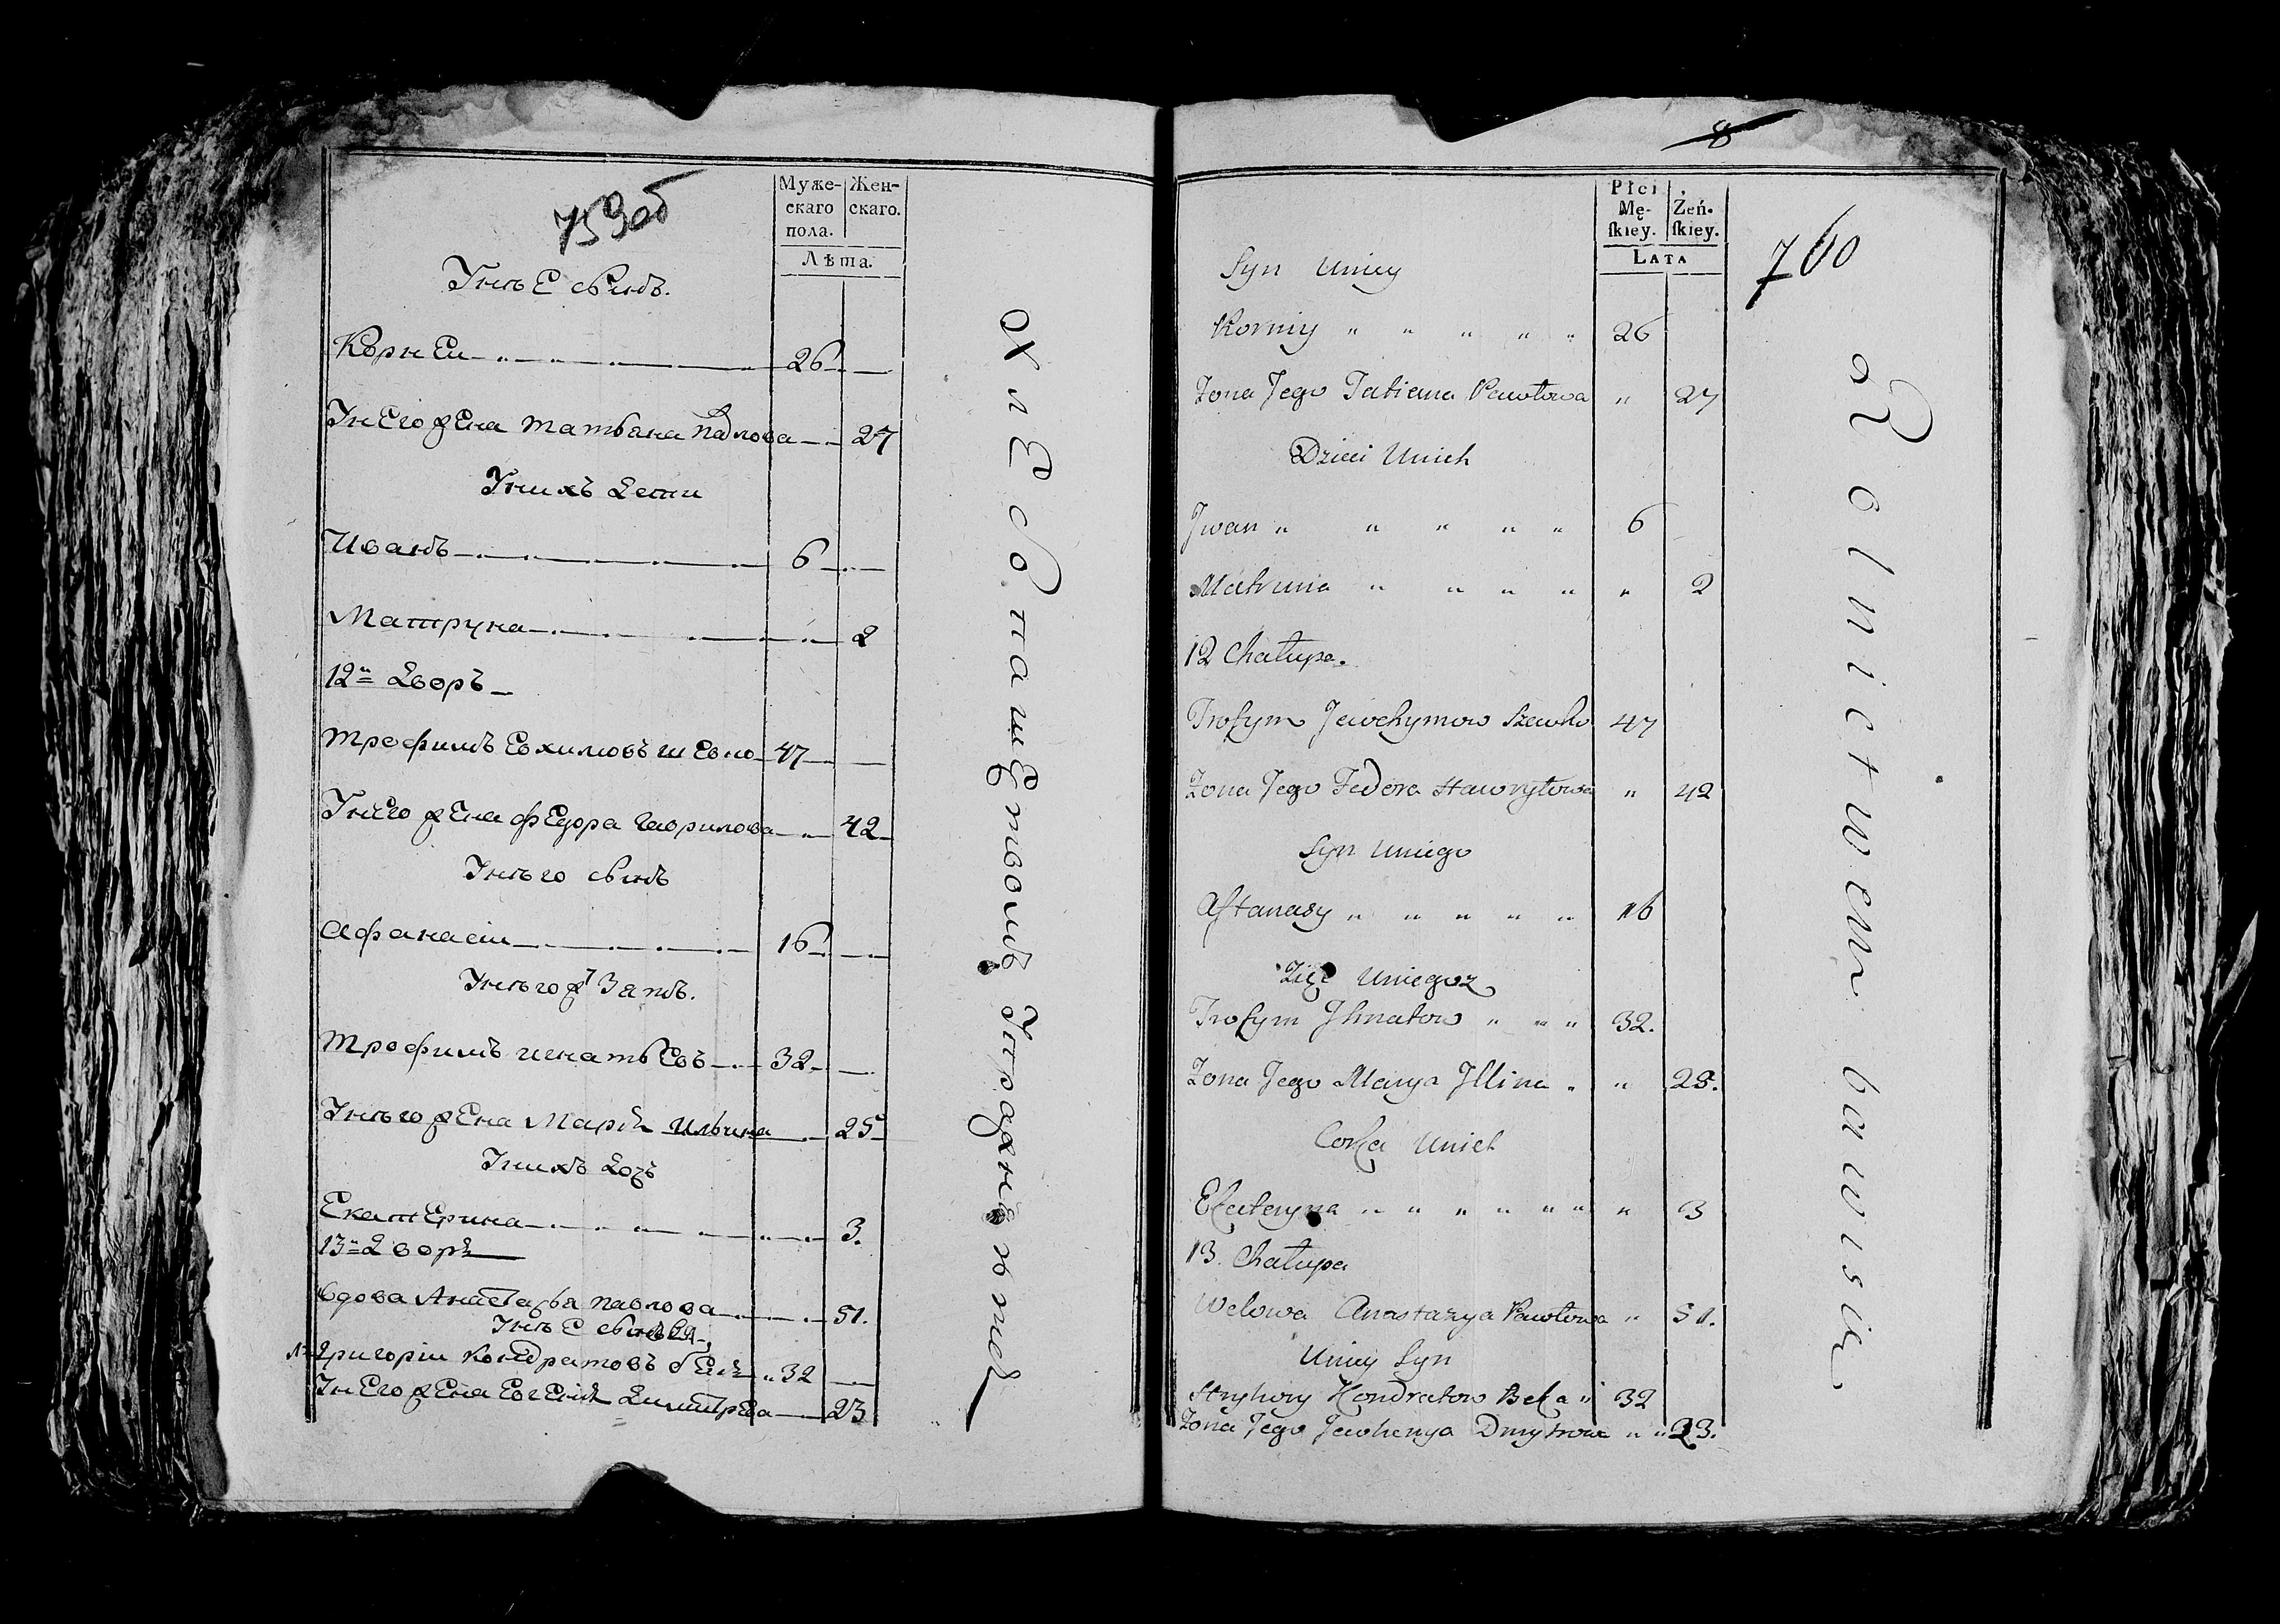 759об
Муже-
скаго
пола.
Жен-
скаго.
Лѣта.
Унее сынъ.
Корней 26
У него жена Татьяна Павлова 27
У нихъ дети
Иванъ 6
Матруна 2
12й дворъ
Трофимъ Евхимовъ Шевко 47
У него жена Федора Гаврилова 42
У него сынъ
Афанасій 16
У него ж зять.
Трофимъ Игнатьевъ 32
У него жена Марія Ильина 25
У нихъ дочь
Екатерина 3.
13й дворъ
Вдова Анастазья Павлова 51.
У нее сынъ
Григорій Кондратовъ 32
У него жена Евгенія Димитрева 23
Хлебопашествомъ Упражняются
8
Płci
Mę-
ſkiey.
Zeń-
ſkiey.
LATA
760
Syn Uniey
Korniy " " " " " 26
Zona Jego Tatiana Pawłowa " 27
Dzieci Unich
Jwan " " " " " 6
Matruna " " " " " 2
12 Chałupa.
Trofym Jewchymow Szewko 47
Zona Jego Fedora Hawryłowa " 42
Syn Uniego
Aftanasy " " " " " 16
Zięć Uniegoż
Trofym Jhnatow " " " 32.
Zona Jego Marya Jllina " " 25.
Corka Unich
Ekateryna " " " " " " " 3
13. Chałupa
Wdowa Anastazya Pawłowa " 51.
Uniey Syn
Hryhory Kondratow Beła " 32
Zona Jego Jewhenya Dmytrowa " " 23.
Rolnictwem bawi sie